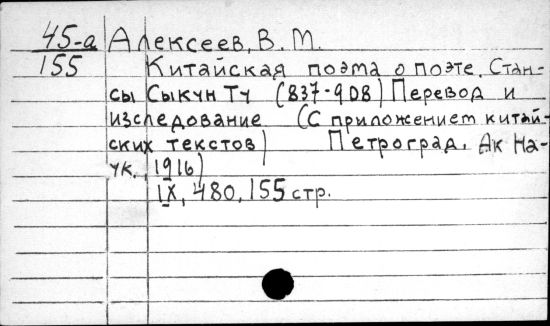 45-а Алексеев, В. М.
155 Китайская поэма о поэте. Стан-
сы Сыкун Ту (837-908) Перевод и
изследование (С приложением китай-
ских текстов) Петроград, Ак На-
ук, 1916)
IX, 480, 155 стр.